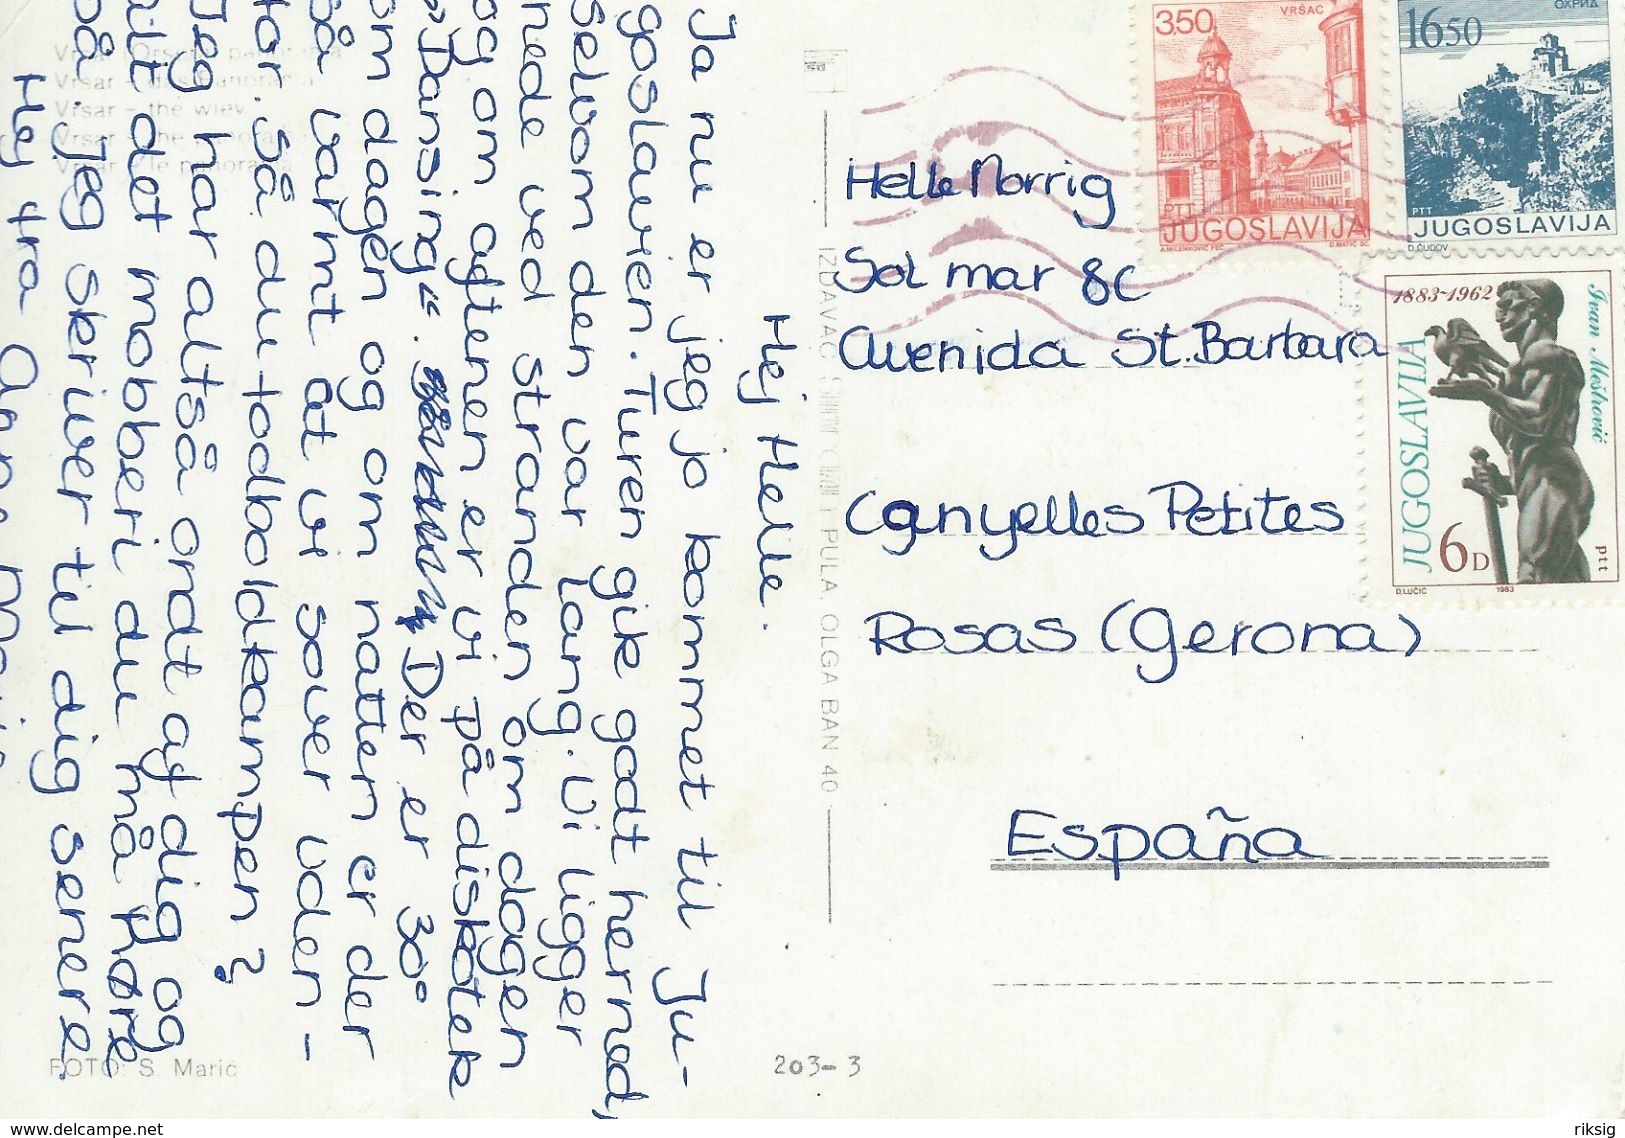 Hej Helle.
Ja nu er jeg jo kommet til Ju-
goslavien. Turen gik godt hernad,
selvom den var lang. Vi ligger
nede ved stranden om dagen
og om aftenen er vi på diskotek
"Dansing". Der er 30°
om dagen og om natten er der
så varmt at vi sover uden-
for. Så du fodboldkampen?
Jeg har altså ondt af dig og
alt det mobberi du må høre
på. Jeg skriver til dig senere.
Hej fra
Helle Norrig
Sol mar 8C
Avenida St. Barbara
Canyelles Petites
Rosas (Gerona)
España
3,50
VRŠAC
PTT
JUGOSLAVIJA
A.MILENKOVIĆ FEC.
D.MATIĆ SC.
16,50
ОХРИД
PTT
JUGOSLAVIJA
D.ČUDOV
1883-1962
Ivan Meštrović
JUGOSLAVIJA
6D
ptt
D.LUČIĆ
1983
Vrsar -
Vrsar - das Panorama
Vrsar - the wiev
Vrsar - the panorama
Vrsar - le panorama
IZDAVAČ
PULA, OLGA BAN 40
FOTO: S. Marić
203-3
www.delcampe.net
riksig